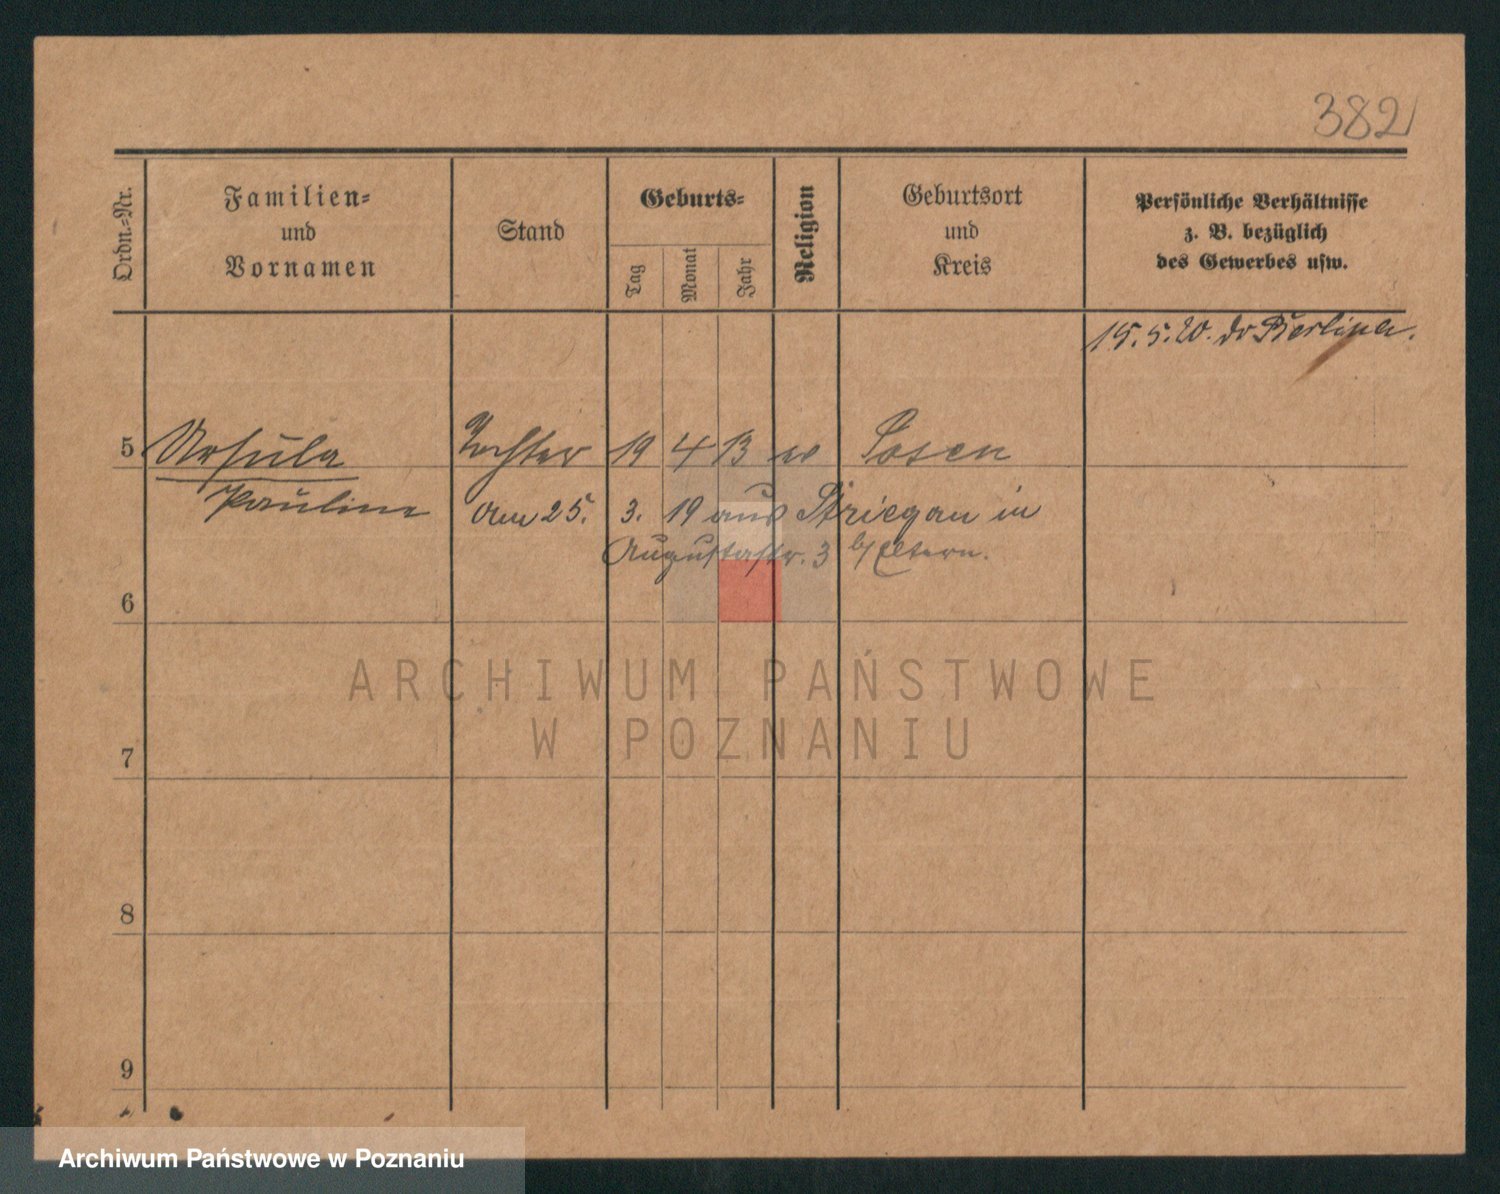 382
Ordn.-Nr.
Familien-
und
Vornamen
Stand
Geburts-
Tag
Monat
Jahr
Religion
Geburtsort
und
Kreis
Persönliche Verhältnisse
z. B. bezüglich
des Gewerbes usw.
15. 5. 20.
5 Ursula Tochter 19 4 13 Posen
Pauline Am 25. 3. 19 aus Striegau in
Augustastr. 3 b/ Eltern.
6
ARCHIWUM PAŃSTWOWE
W POZNANIU
7
8
9
Archiwum Państwowe w Poznaniu